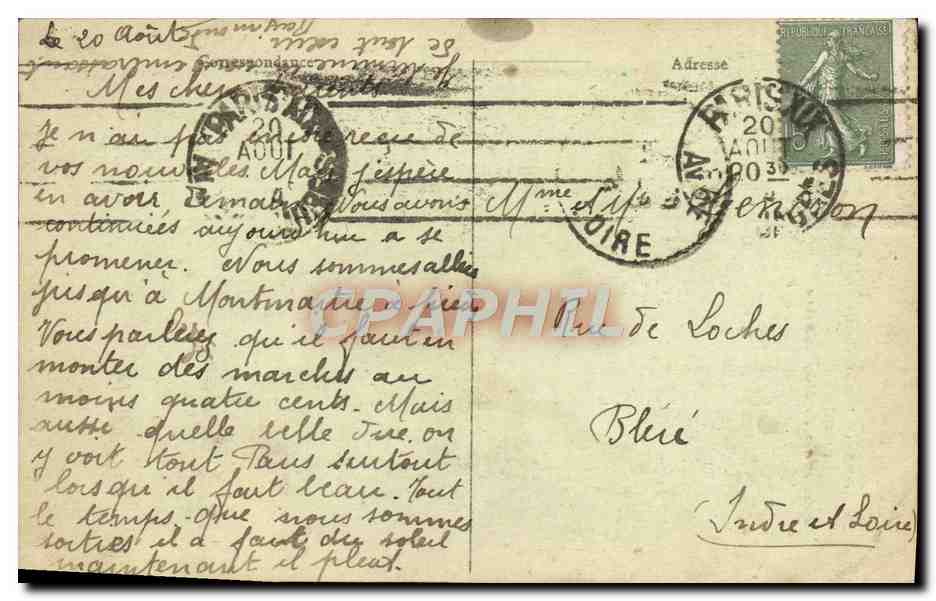 Le 20 Août
Je termine en embrassant
de tout cœur
Raymond
Correspondance
Mes chers parents
Je n'ai pas encore reçu de
vos nouvelles. Mais j'espère
en avoir demain. Nous avons
continuées aujourd'hui a se
promener. Nous sommes allées
jusqu'à Montmartre à pied
Vous parlez qu'il faut en
monter des marches au
moins quatre cents. Mais
aussi quelle belle vue. on
y voit tout Paris surtout
lorsqu'il fait beau. Tout
le temps que nous sommes
sorties il a fait du soleil
maintenant il pleut.
Adresse
REPUBLIQUE FRANÇAISE
PARIS XIX
20
AOUT
PARIS XIX
20
AOUT
20 30
LOIRE
Mme et Mr
Rue de Loches
Bléré
(Indre et Loire)
CPAPHIL